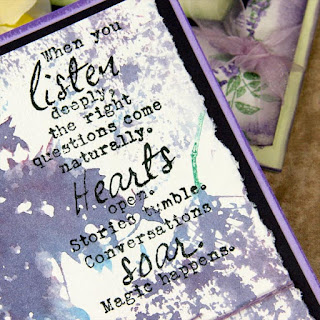 When you
listen
deeply,
the right
questions come
naturally.
Hearts
open.
Stories tumble.
Conversations
soar.
Magic happens.